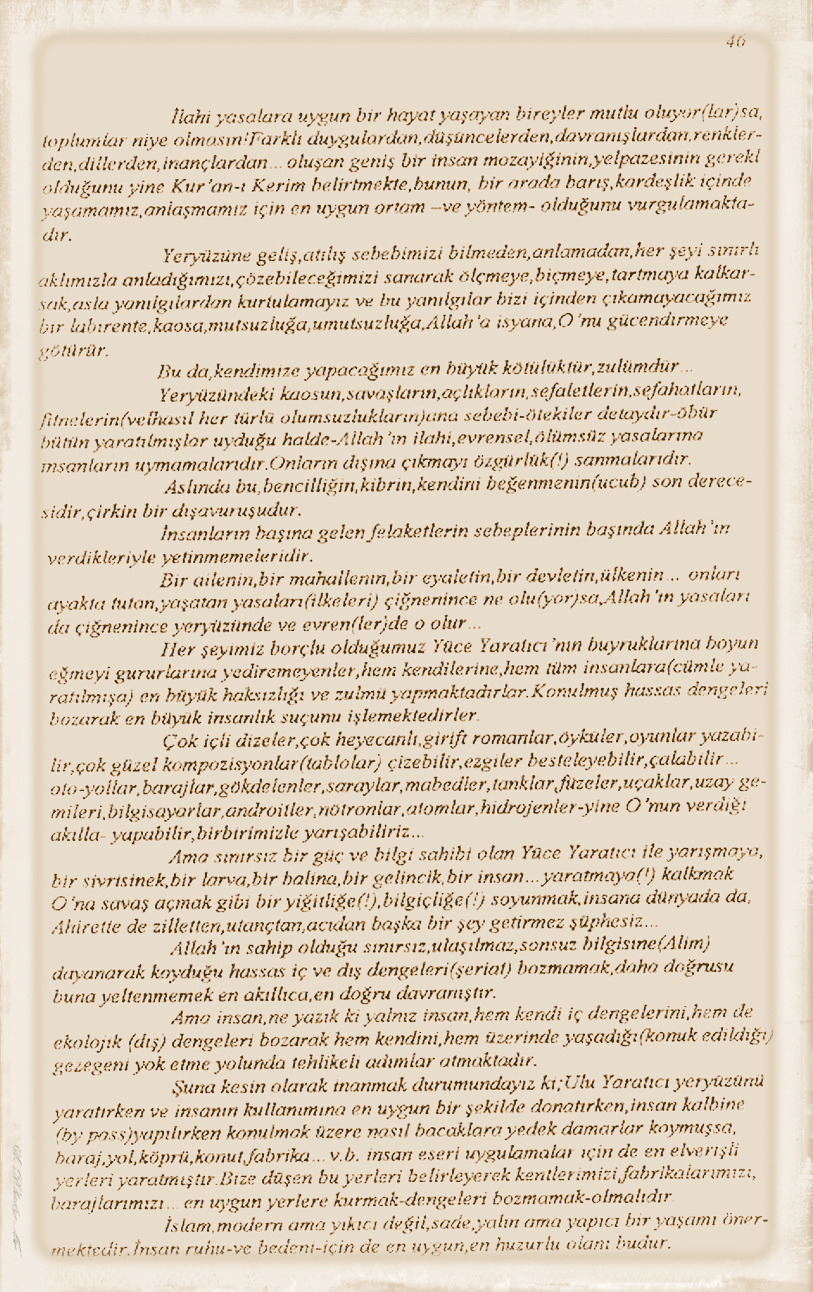 46
İlahi yasalara uygun bir hayat yaşayan bireyler mutlu oluyor(lar)sa,
toplumlar niye olmasın!Farklı duygulardan,düşüncelerden,davranışlardan,renkler-
den,dillerden,inançlardan...oluşan geniş bir insan mozayiğinin,yelpazesinin gerekl
olduğunu yine Kur'an-ı Kerim belirtmekte,bunun, bir arada barış,kardeşlik içinde
yaşamamız,anlaşmamız için en uygun ortam –ve yöntem- olduğunu vurgulamakta-
dır.
Yeryüzüne geliş,atılış sebebimizi bilmeden,anlamadan,her şeyi sınırlı
aklımızla anladığımızı,çözebileceğimizi sanarak ölçmeye,biçmeye,tartmaya kalkar-
sak,asla yanılgılardan kurtulamayız ve bu yanılgılar bizi içinden çıkamayacağımız
bir labirente,kaosa,mutsuzluğa,umutsuzluğa,Allah'a isyana,O'nu gücendirmeye
götürür.
Bu da,kendimize yapacağımız en büyük kötülüktür,zulümdür...
Yeryüzündeki kaosun,savaşların,açlıkların,sefaletlerin,sefahatların,
fitnelerin(velhasıl her türlü olumsuzlukların)ana sebebi-ötekiler detaydır-öbür
bütün yaratılmışlar uyduğu halde-Allah'ın ilahi,evrensel,ölümsüz yasalarına
insanların uymamalarıdır.Onların dışına çıkmayı özgürlük(!) sanmalarıdır.
Aslında bu,bencilliğin,kibrin,kendini beğenmenin(ucub) son derece-
sidir,çirkin bir dışavuruşudur.
İnsanların başına gelen felaketlerin sebeplerinin başında Allah'ın
verdikleriyle yetinmemeleridir.
Bir ailenin,bir mahallenin,bir eyaletin,bir devletin,ülkenin... onları
ayakta tutan,yaşatan yasaları(ilkeleri) çiğnenince ne olu(yor)sa,Allah'ın yasaları
da çiğnenince yeryüzünde ve evren(ler)de o olur...
Her şeyimiz borçlu olduğumuz Yüce Yaratıcı'nın buyruklarına boyun
eğmeyi gururlarına yediremeyenler,hem kendilerine,hem tüm insanlara(cümle ya-
ratılmışa) en büyük haksızlığı ve zulmü yapmaktadırlar.Konulmuş hassas dengeleri
bozarak en büyük insanlık suçunu işlemektedirler.
Çok içli dizeler,çok heyecanlı,girift romanlar,öyküler,oyunlar yazabi-
lir,çok güzel kompozisyonlar(tablolar) çizebilir,ezgiler besteleyebilir,çalabilir...
oto-yollar,barajlar,gökdelenler,saraylar,mabedler,tanklar,füzeler,uçaklar,uzay ge-
mileri,bilgisayarlar,androitler,nötronlar,atomlar,hidrojenler-yine O'nun verdiği
akılla- yapabilir,birbirimizle yarışabiliriz...
Ama sınırsız bir güç ve bilgi sahibi olan Yüce Yaratıcı ile yarışmaya,
bir sivrisinek,bir larva,bir balina,bir gelincik,bir insan...yaratmaya(!) kalkmak
O'na savaş açmak gibi bir yiğitliğe(!),bilgiçliğe(!) soyunmak,insana dünyada da,
Ahirette de zilletten,utançtan,acıdan başka bir şey getirmez şüphesiz...
Allah'ın sahip olduğu sınırsız,ulaşılmaz,sonsuz bilgisine(Alim)
dayanarak koyduğu hassas iç ve dış dengeleri(şeriat) bozmamak,daha doğrusu
buna yeltenmemek en akıllıca,en doğru davranıştır.
Ama insan,ne yazık ki yalnız insan,hem kendi iç dengelerini,hem de
ekolojik (dış) dengeleri bozarak hem kendini,hem üzerinde yaşadığı(konuk edildiği)
gezegeni yok etme yolunda tehlikeli adımlar atmaktadır.
Şuna kesin olarak inanmak durumundayız ki;Ulu Yaratıcı yeryüzünü
yaratırken ve insanın kullanımına en uygun bir şekilde donatırken,insan kalbine
(by pass)yapılırken konulmak üzere nasıl bacaklara yedek damarlar koymuşsa,
baraj,yol,köprü,konut,fabrika... v.b. insan eseri uygulamalar için de en elverişli
yerleri yaratmıştır.Bize düşen bu yerleri belirleyerek kentlerimizi,fabrikalarımızı,
barajlarımızı...en uygun yerlere kurmak-dengeleri bozmamak-olmalıdır.
İslam,modern ama yıkıcı değil,sade,yalın ama yapıcı bir yaşamı öner-
mektedir.İnsan ruhu-ve bedeni-için de en uygun,en huzurlu olanı budur.